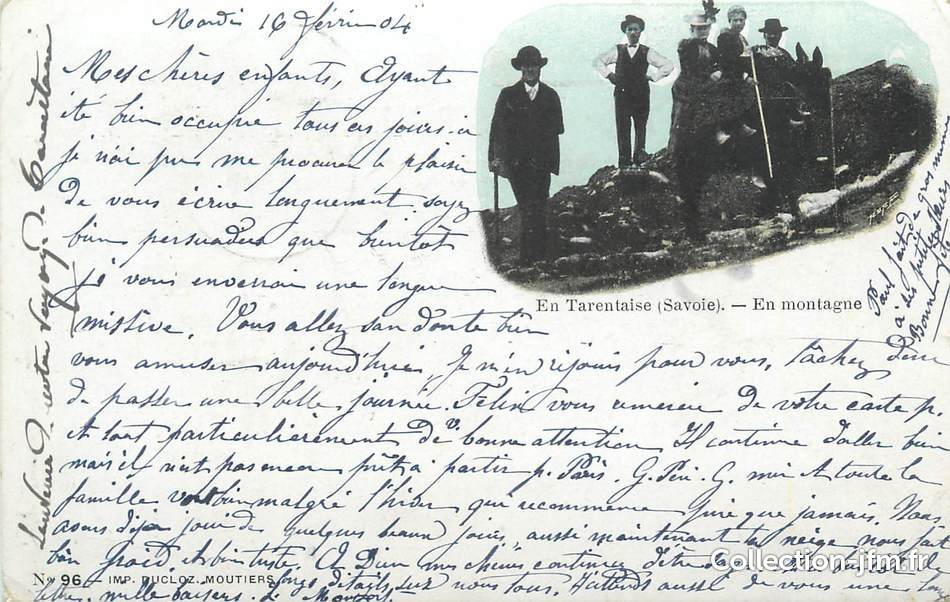 Mardi 16 février 04
Mes chères enfants, Ayant
été bien occupée tous ces jours-ci
je n'ai pu me procurer le plaisir
de vous écrire longuement soyez
bien persuadées que bientôt
je vous enverrai une longue
missive. Vous allez san doute bien
vous amuser aujourd'hui, Je m'en réjouis pour vous, tâchez donc
de passer une belle journée. Félix vous remercie de votre carte p.
et tout particulièrement de v. bonne attention Il continue d'aller bien
mais il n'est pas encore prêt à partir p. Paris. G. Pèr. G. mèr. et toute la
famille vont bien malgré l'hiver qui recommence pire que jamais. Nous
avons déjà joui de quelques beaux jours, aussi maintenant la neige nous fait
bien froid, et bien triste. A Dieu mes chères continuez d'être
longs détails sur nous tous. J'attends aussi de vous une
lettre. mille baisers.
Paul fait de gros mimi
à ses petites
Bonne
Souvenir
Tarentaise
En Tarentaise (Savoie). — En montagne
No 96 — IMP. DUCLOZ, MOUTIERS
Collection-jfm.fr